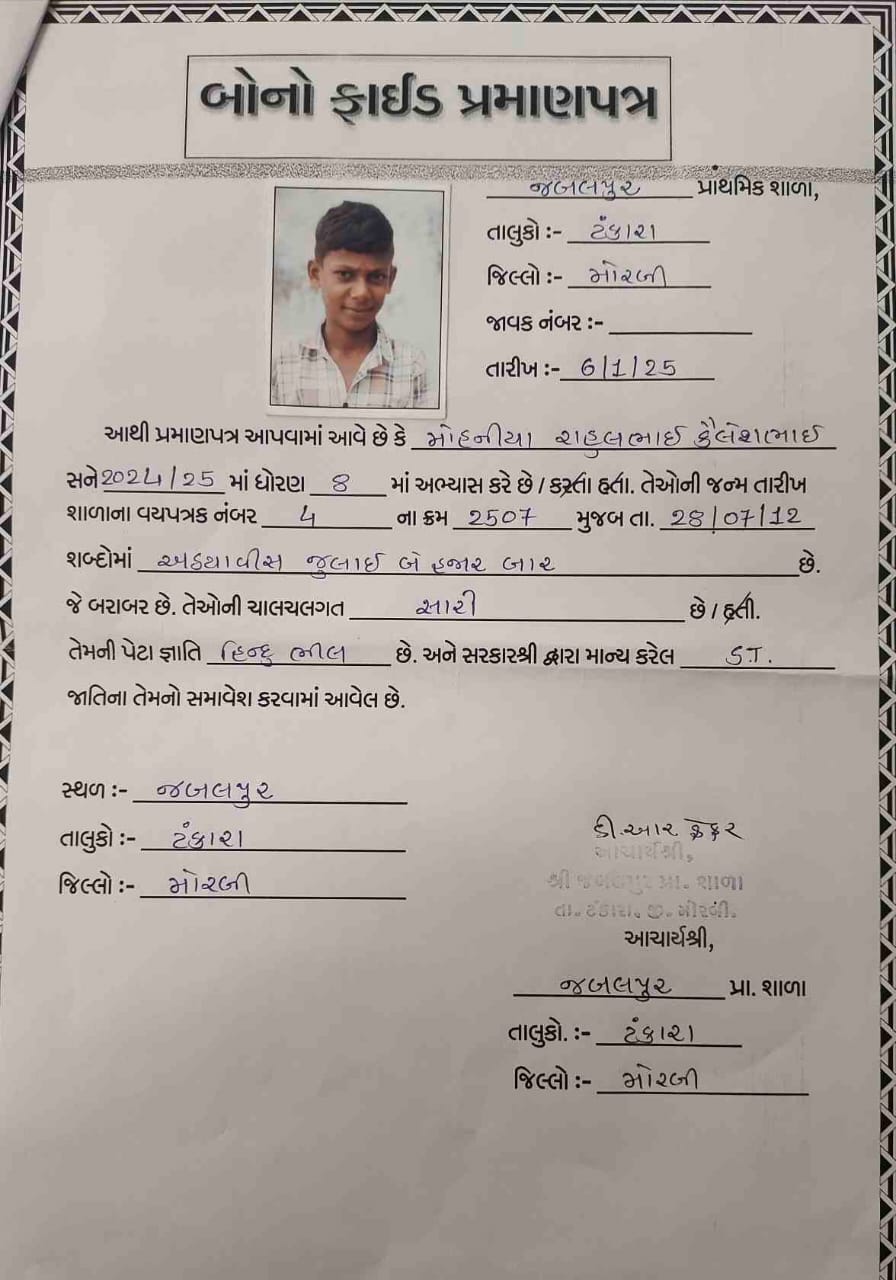 બોનો ફાઈડ પ્રમાણપત્ર
જબલપુર પ્રાથમિક શાળા,
તાલુકો :- ટંકારા
જિલ્લો :- મોરબી
જાવક નંબર :-
તારીખ :- 6/1/25
આથી પ્રમાણપત્ર આપવામાં આવે છે કે મોહનીયા રાહુલભાઈ કૈલેશભાઈ
સને 2024/25 માં ધોરણ 8 માં અભ્યાસ કરે છે / કરતા હતા. તેઓની જન્મ તારીખ
શાળાના વયપત્રક નંબર 4 ના ક્રમ 2507 મુજબ તા. 28/07/12
શબ્દોમાં અઠયાવીસ જુલાઈ બે હજાર બાર છે.
જે બરાબર છે. તેઓની ચાલચલગત સારી છે / હતી.
તેમની પેટા જ્ઞાતિ હિન્દુ ભીલ છે. અને સરકારશ્રી દ્વારા માન્ય કરેલ S.T.
જાતિના તેમનો સમાવેશ કરવામાં આવેલ છે.
સ્થળ :- જબલપુર
તાલુકો :- ટંકારા
જિલ્લો :- મોરબી
ડી.આર
આચાર્યશ્રી,
શ્રી જબલપુર પ્રા. શાળા
તા. ટંકારા, જી. મોરબી.
આચાર્યશ્રી,
જબલપુર પ્રા. શાળા
તાલુકો. :- ટંકારા
જિલ્લો :- મોરબી